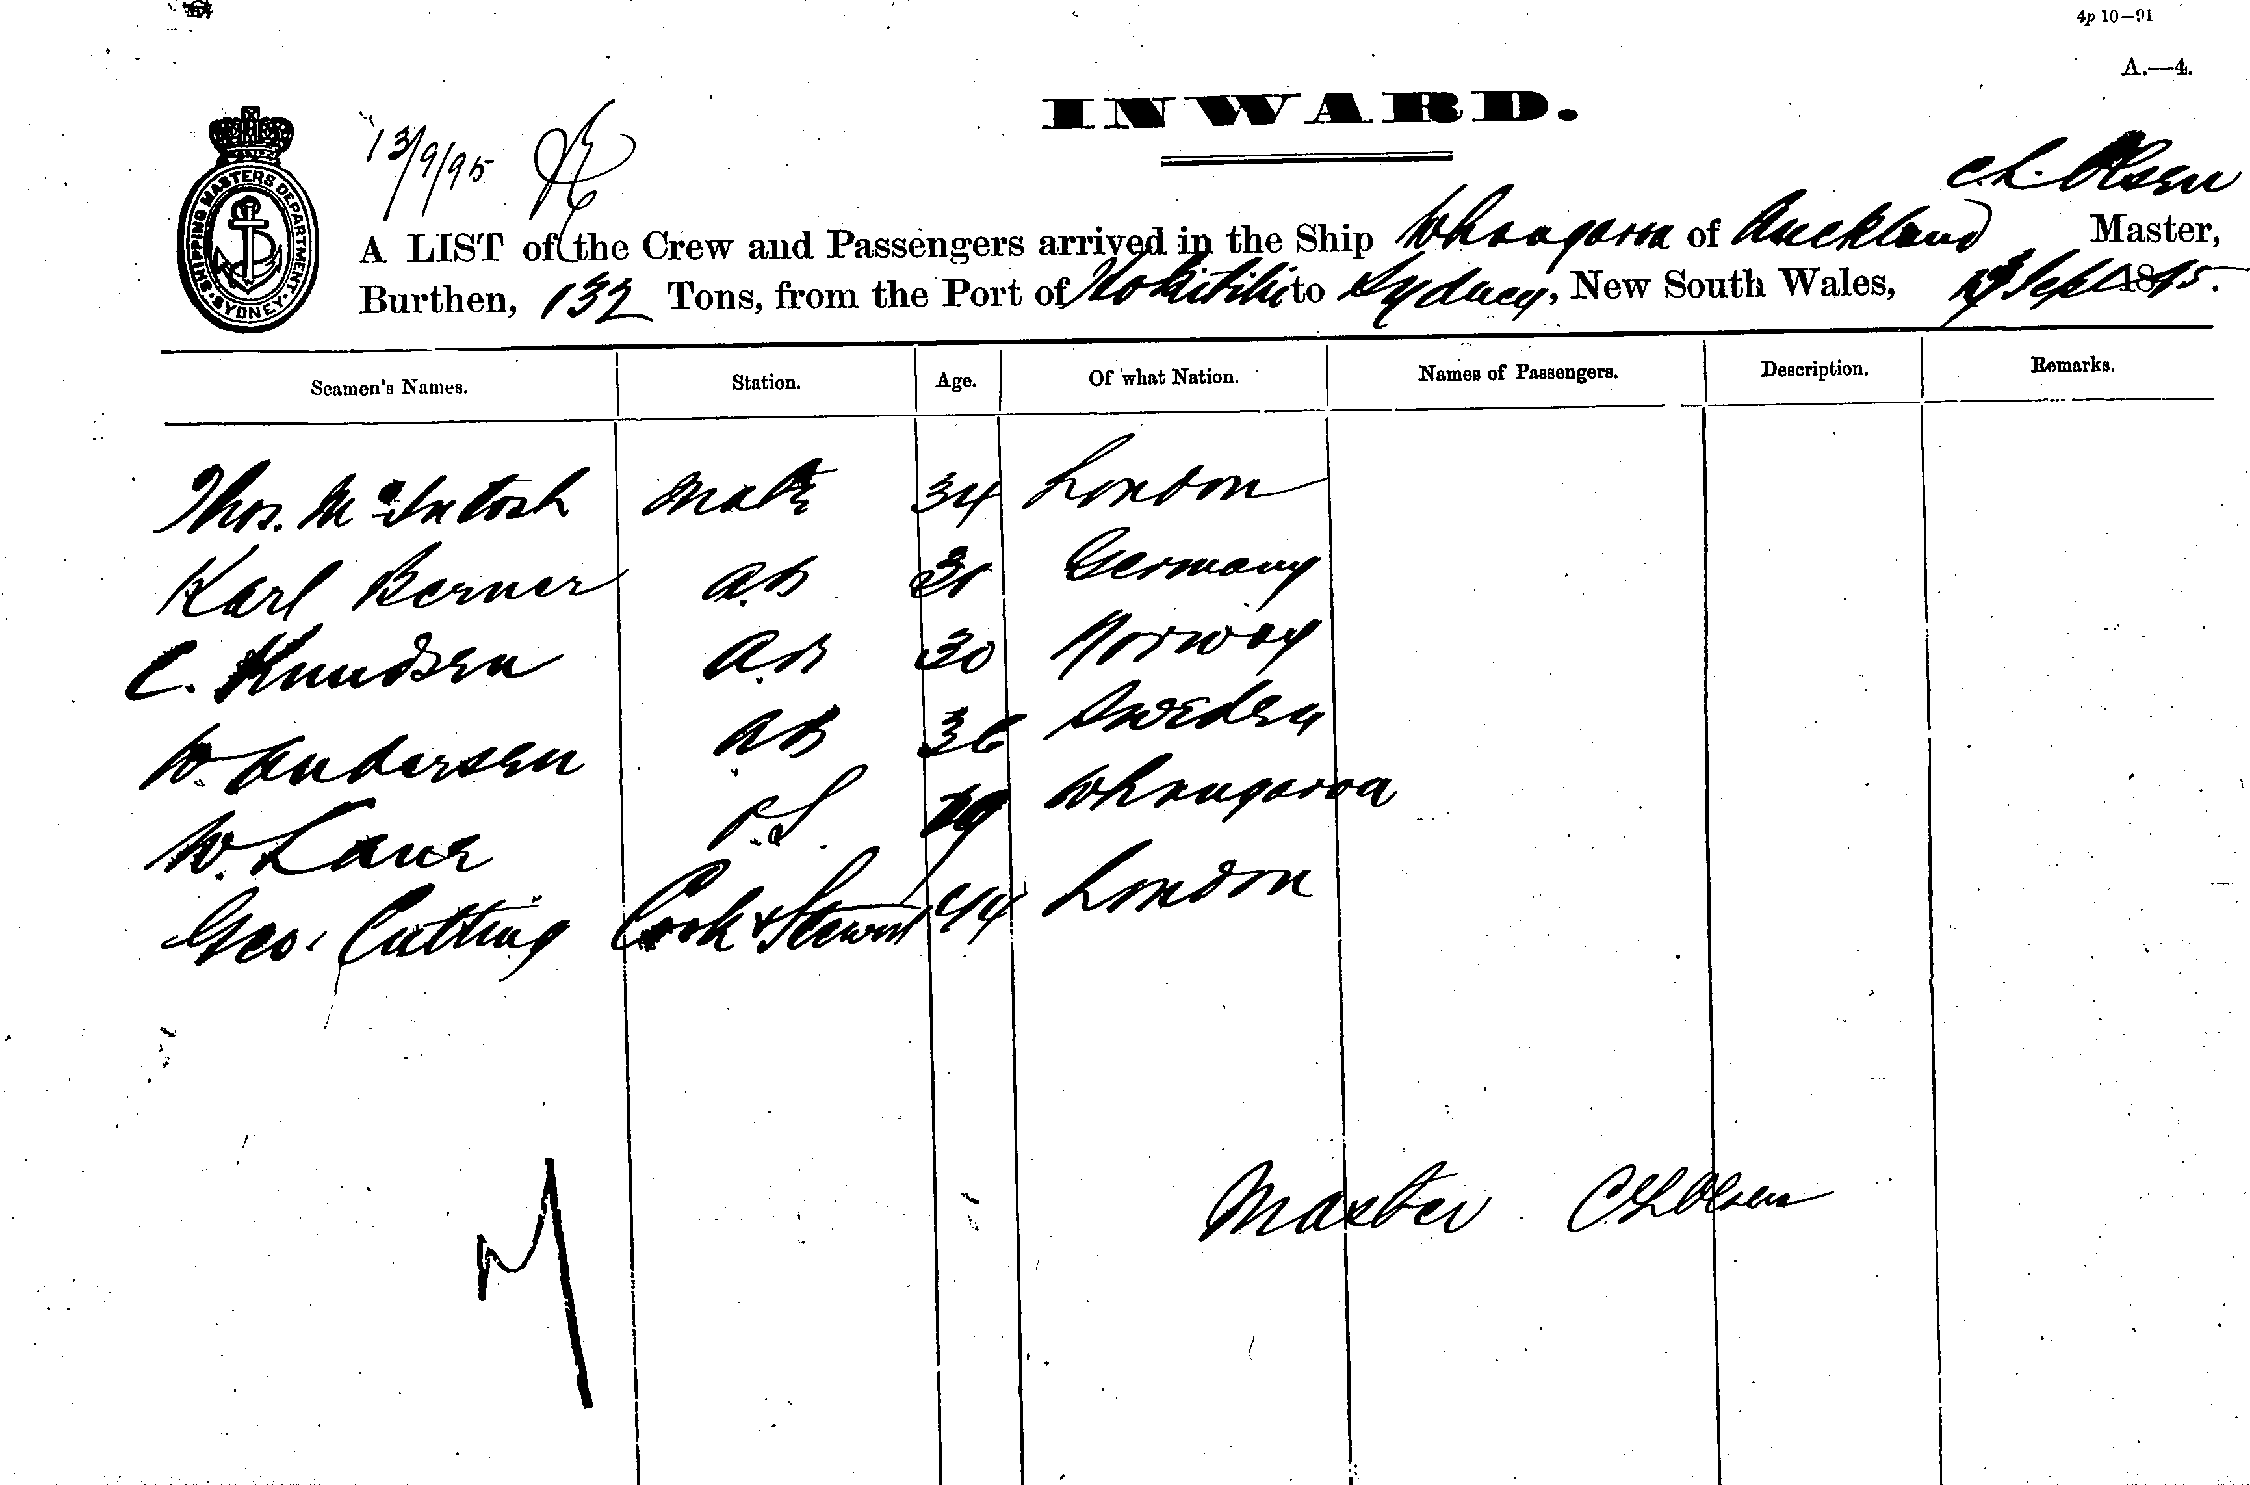 4p 10—91
A.—4.
INWARD.
13/9/95
SHIPPING MASTERS DEPARTMENT. SYDNEY
C.L. Olsen
A LIST of the Crew and Passengers arrived in the Ship Whangaroa of Auckland Master,
Burthen, 132 Tons, from the Port of to Sydney, New South Wales, 13 Sept 1895.
Seamen's Names. Station. Age. Of what Nation. Names of Passengers. Description. Remarks.
Thos. McIntosh Mate 34 London
Karl Berner A.B 31 Germany
C. Knudsen A.B 30 Norway
W. Andersen A.B 36 Sweden
W. Lane O.S. 19 Whangaroa
Geo. Cutting Cook & Steward 44 London
Master C L Olsen